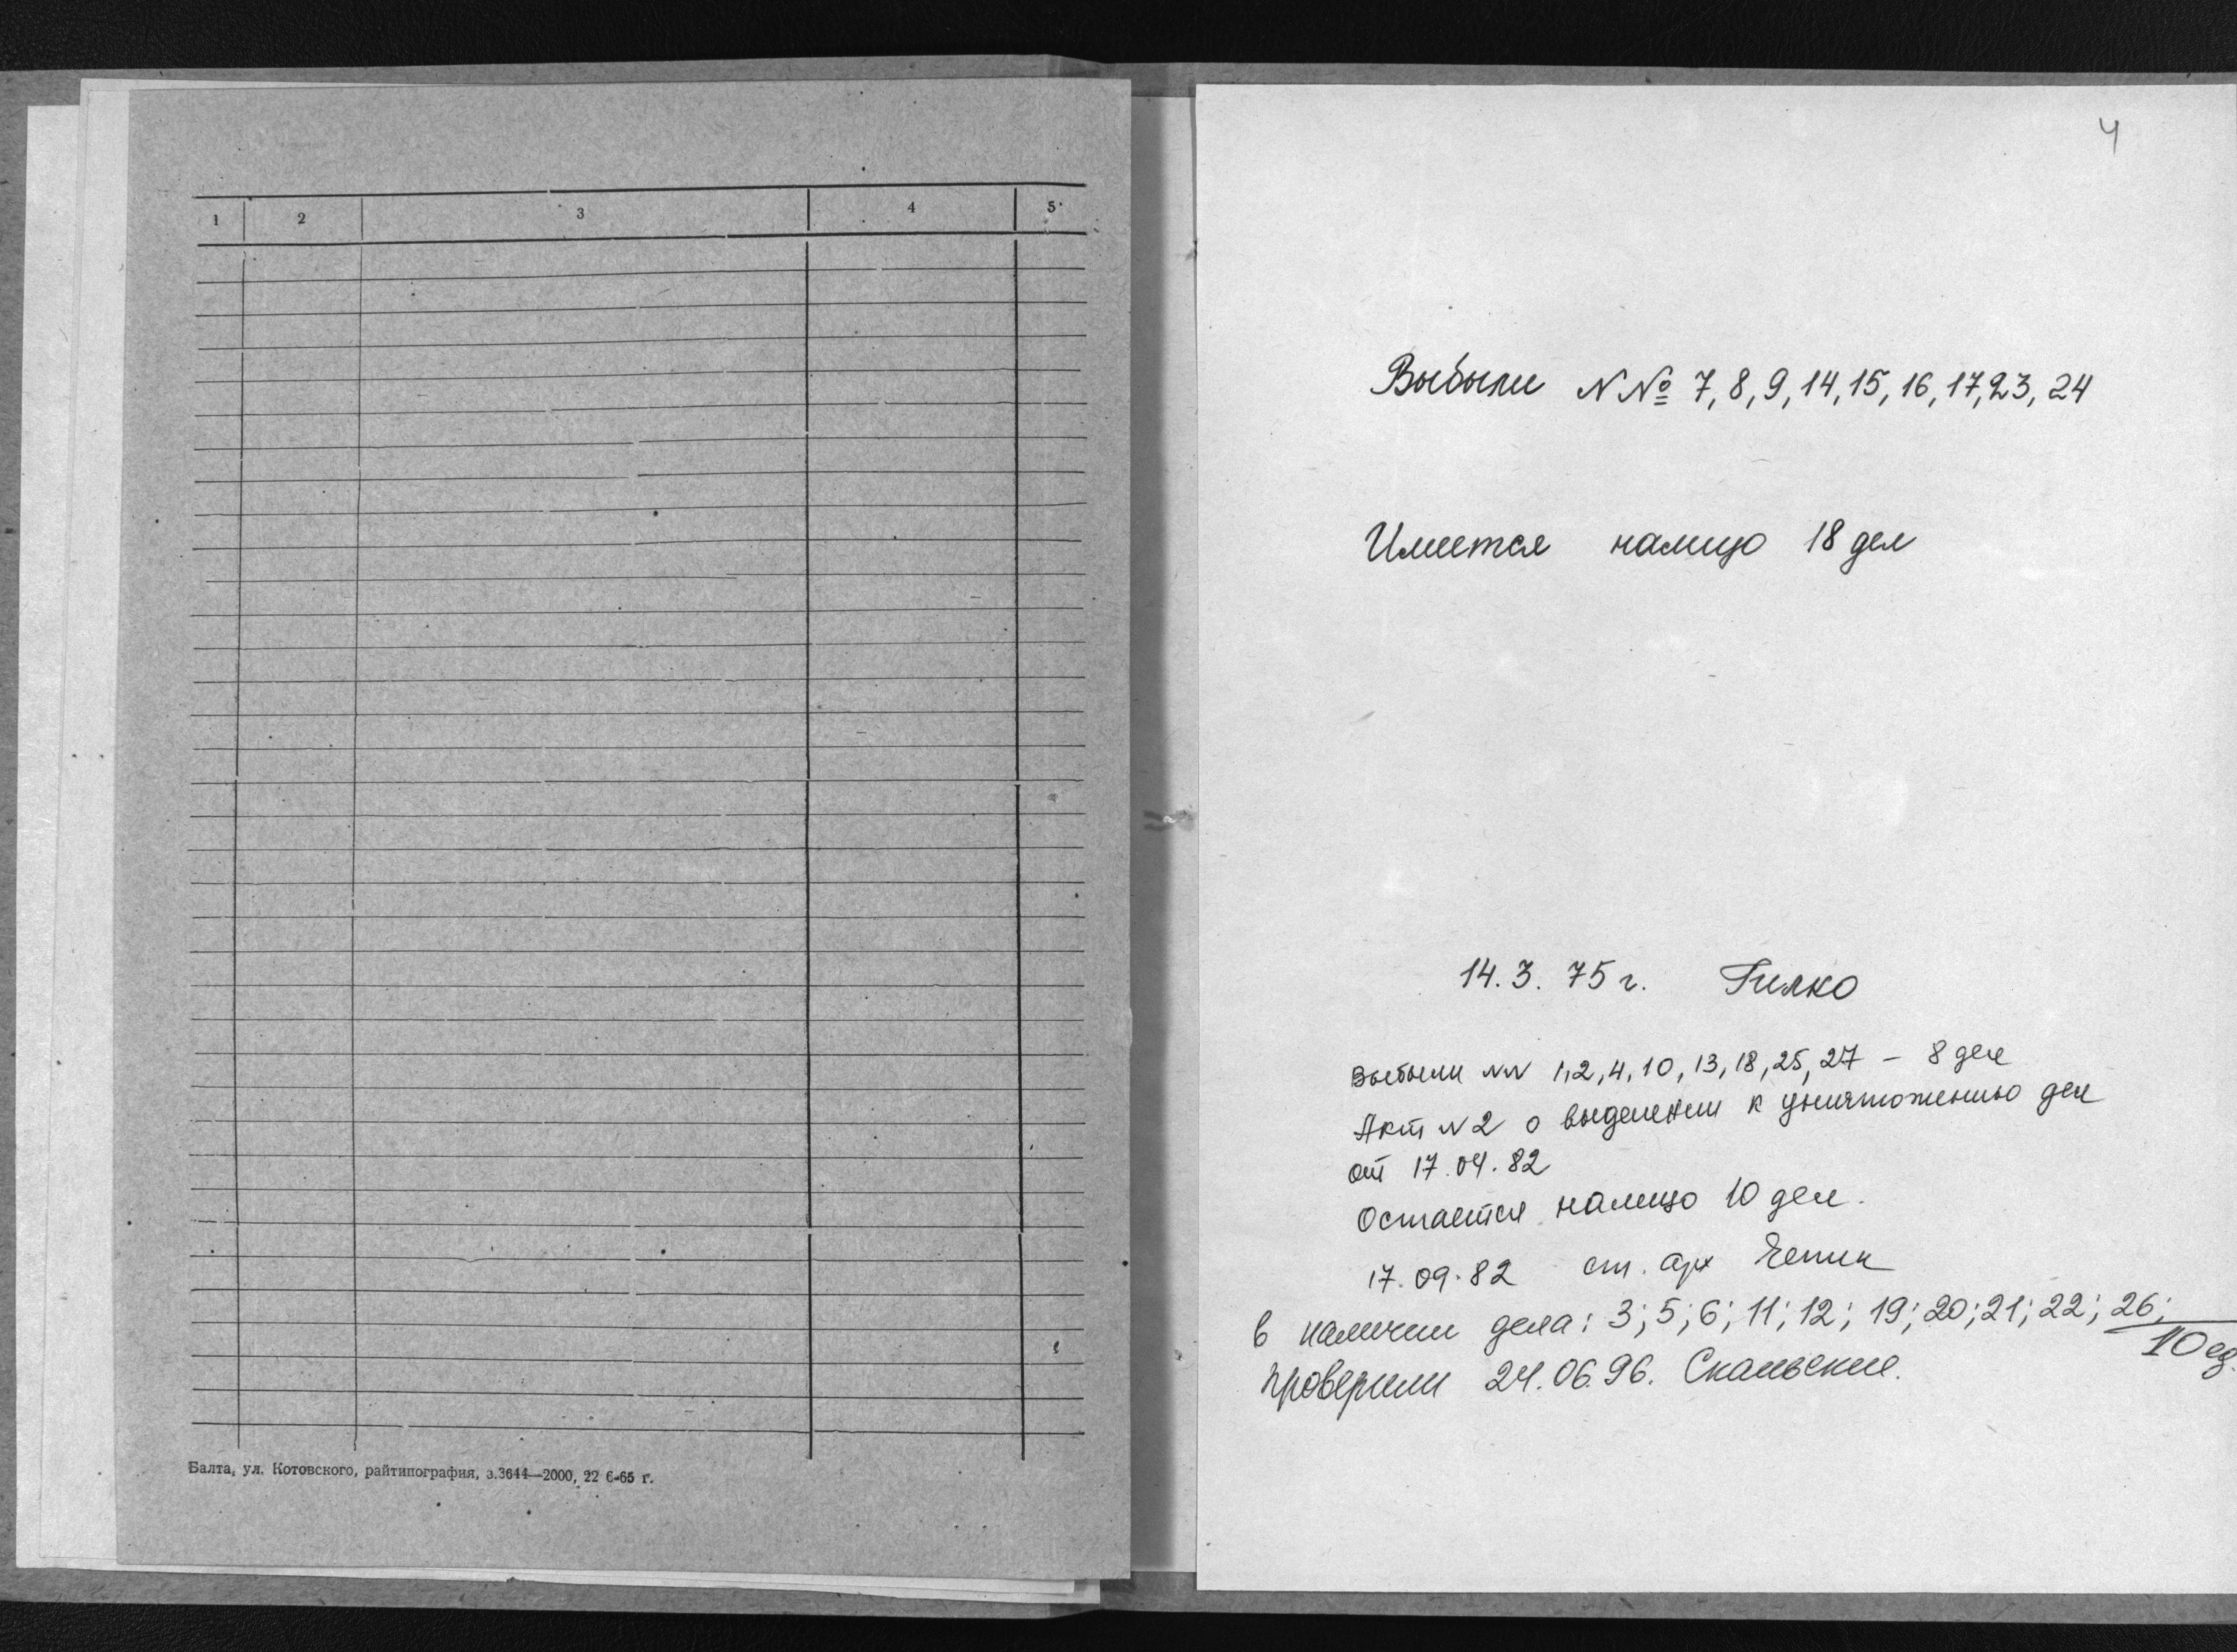 1 2 3 4 5
Балта, ул. Котовского, райтипография, з.3644—2000, 22 6-65 г.
4
Выбыли N № 7, 8, 9, 14, 15, 16, 17, 23, 24
Имеется налицо 18 дел
14.3.75 г. Гилко
Выбыли NN 1, 2, 4, 10, 13, 18, 25, 27 – 8 дел
Акт N 2 о выделении к уничтожению дел
от 17.04.82
Остается налицо 10 дел.
17.09.82 ст. арх
В наличии дела: 3; 5; 6; 11; 12; 19; 20; 21; 22; 26;
10 ед.
Проверили 24.06.96.